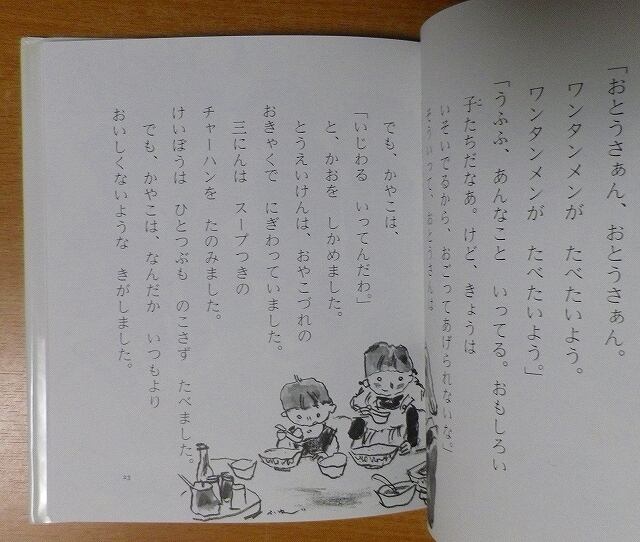 「おとうさぁん、おとうさぁん。
ワンタンメンが たべたいよう。
ワンタンメンが たべたいよう。」
「うふふ、あんなこと いってる。おもしろい
子たちだなあ。けど、きょうは
いそいでるから、おごってあげられないな。」
そういって、おとうさんは
でも、かやこは、
「いじわる いってんだわ。」
と、かおを しかめました。
とうえいけんは、おやこづれの
おきゃくで にぎわっていました。
三にんは スープつきの
チャーハンを たのみました。
けいぼうは ひとつぶも のこさず たべました。
でも、かやこは、なんだか いつもより
おいしくないような きがしました。
23